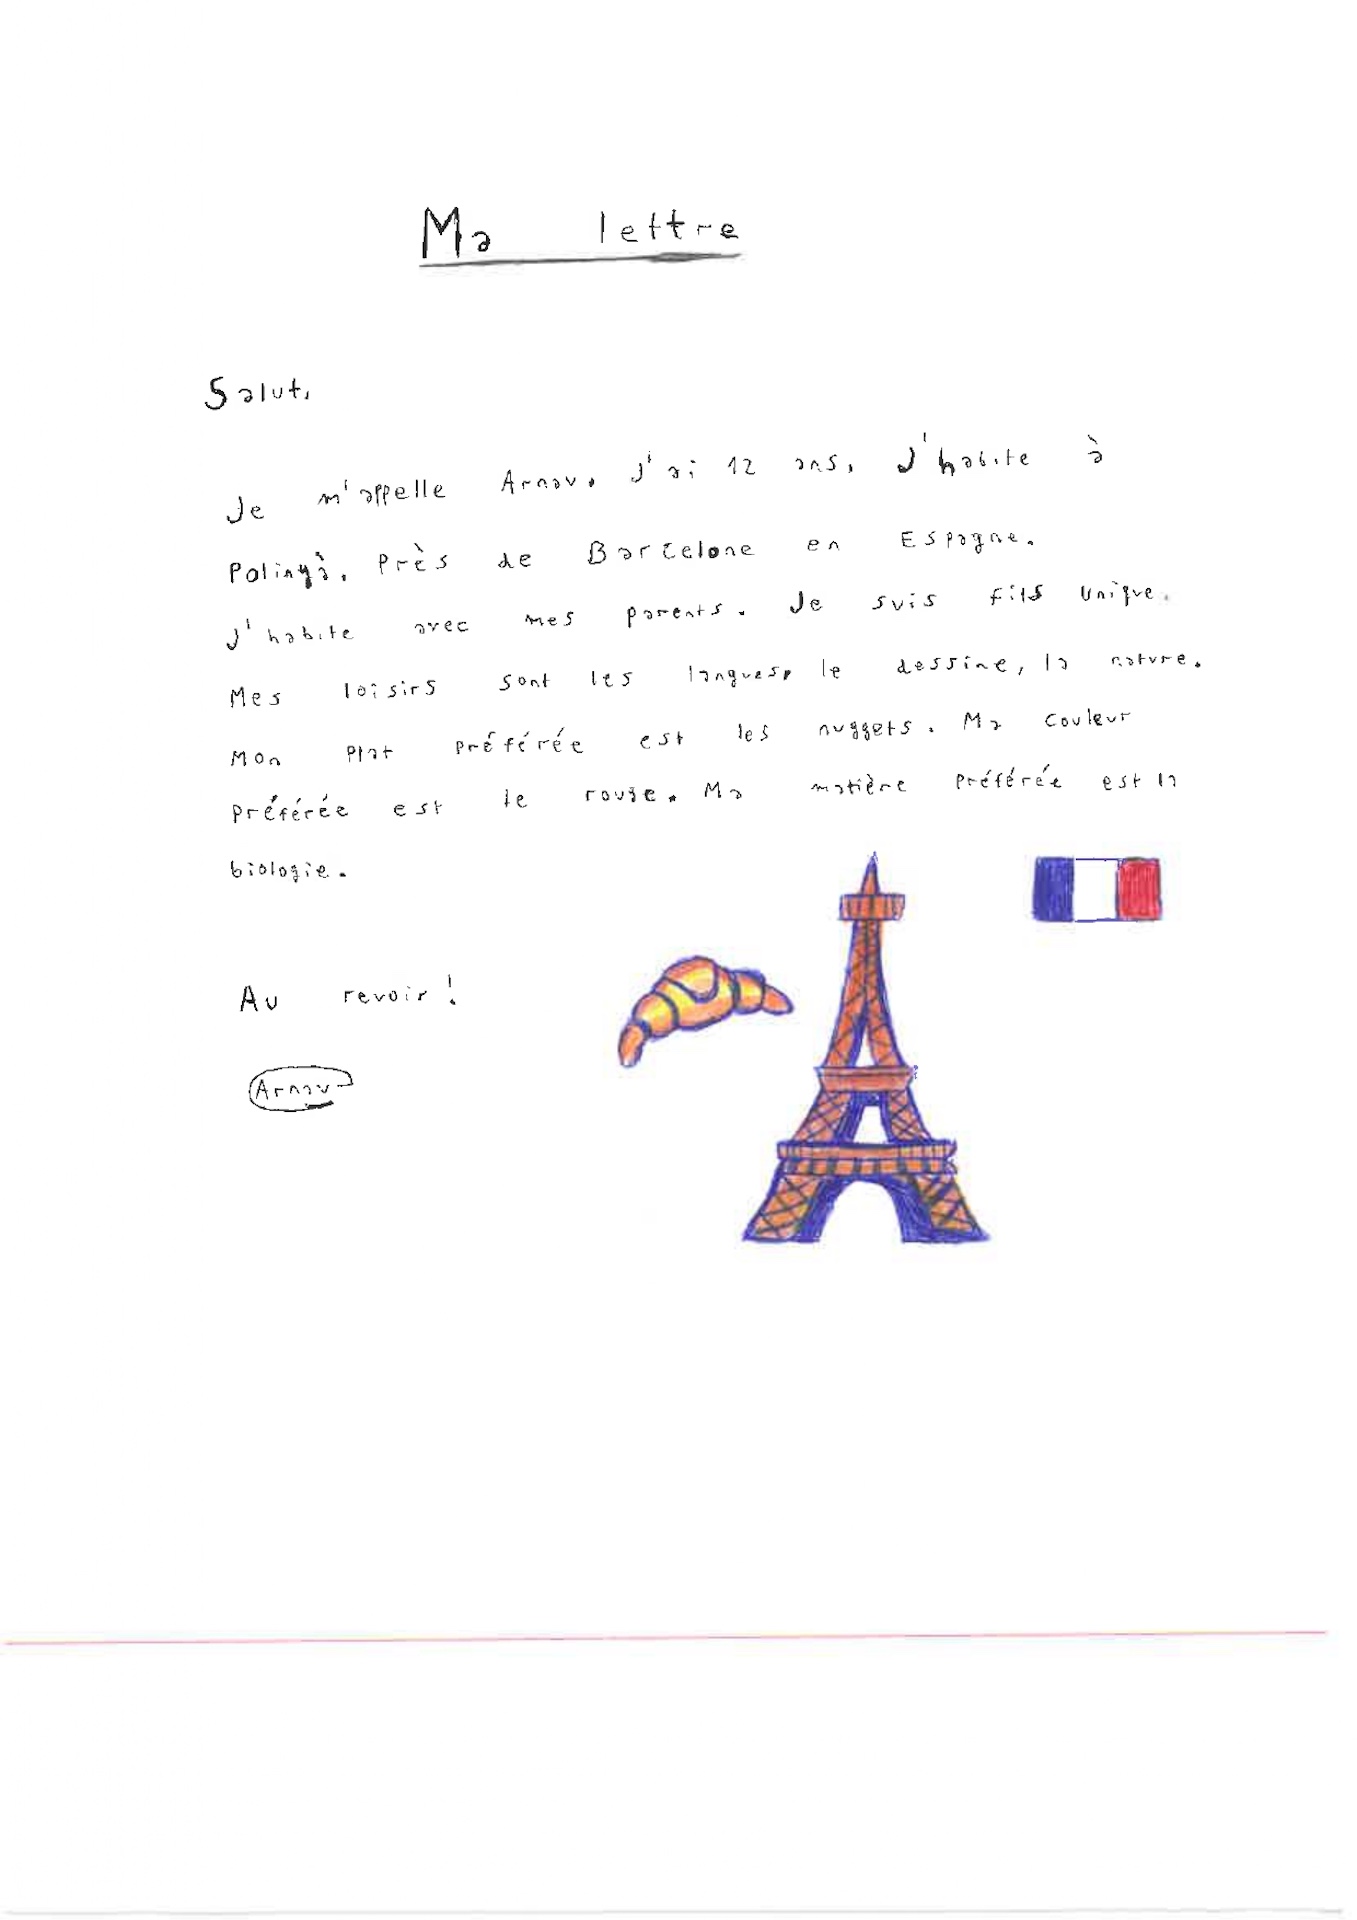 Ma lettre
Salut,
Je m'appelle Arnav. J'ai 12 ans. J'habite à
Polinyà. Près de Barcelone en Espagne.
J'habite avec mes parents. Je suis fils unique.
Mes loisirs sont les langues, le dessine, la nature.
Mon plat préférée est les nuggets. Ma couleur
préférée est le rouge. Ma matière préférée est la
biologie.
Au revoir!
Arnav